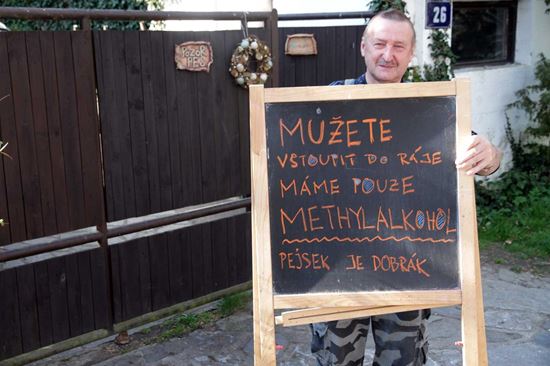 POZOR
PES
26
MŮŽETE
VSTOUPIT DO RÁJE
MÁME POUZE
METHYLALKOHOL
PEJSEK JE DOBRÁK